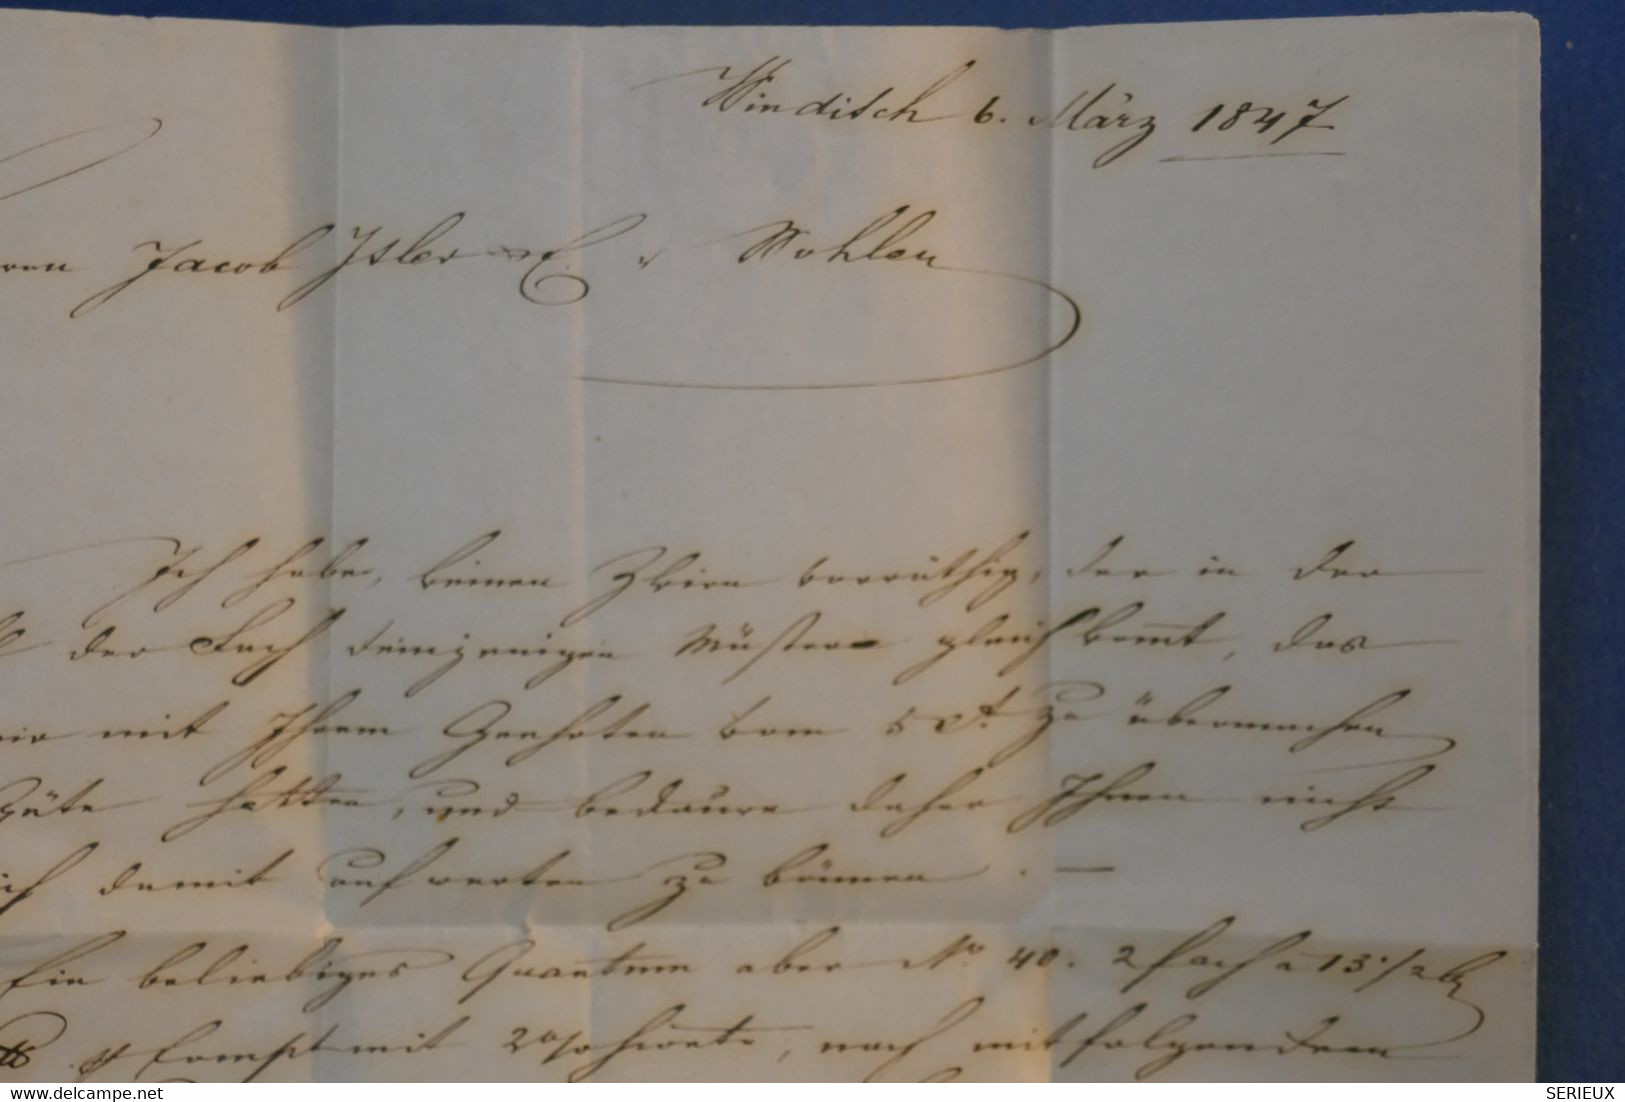 Windisch 6. März 1847
Jacob Isler & C. Wohlen
Ich habe, keinen Zwirn vorräthig, der in der
der Fach demjenigen Muster gleich kommt, das
mir mit Ihrem Geehrten vom 5 ct. zu übermachen
Güte hatten, und bedaure daher Ihnen nicht
damit aufwarten zu können. —
Ein beliebiges Quantum aber No. 40. 2fach à 13 1/2
compt mit 2% Sconto, nach mitfolgendem
delcampe.net
SERIEUX